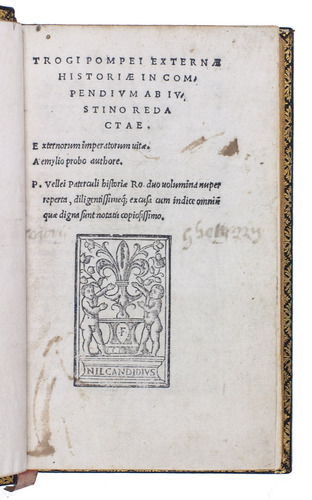 TROGI POMPEI EXTERNÆ
HISTORIÆ IN COM⸗
PENDIVM AB IV⸗
STINO REDA
CTAE.
Externorum imperatorum uitæ.
Aemylio probo authore.
P. Vellei Paterculi historiæ Ro. duo uolumina nuper
reperta, diligentissimeq; excusa cum indice omniũ
quæ digna sunt notatu copiosissimo.
F
NIL CANDIDIVS